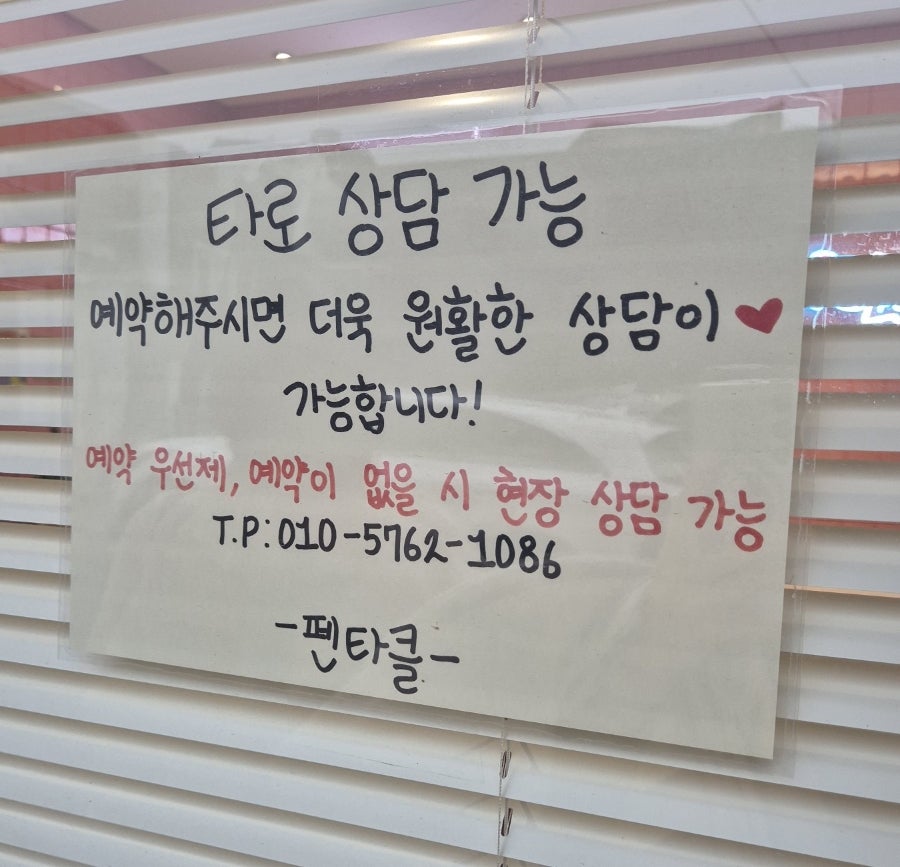 타로 상담 가능
예약해주시면 더욱 원활한 상담이 ♥
가능합니다!
예약 우선제, 예약이 없을 시 현장 상담 가능
T.P: 010-5762-1086
-펜타클-